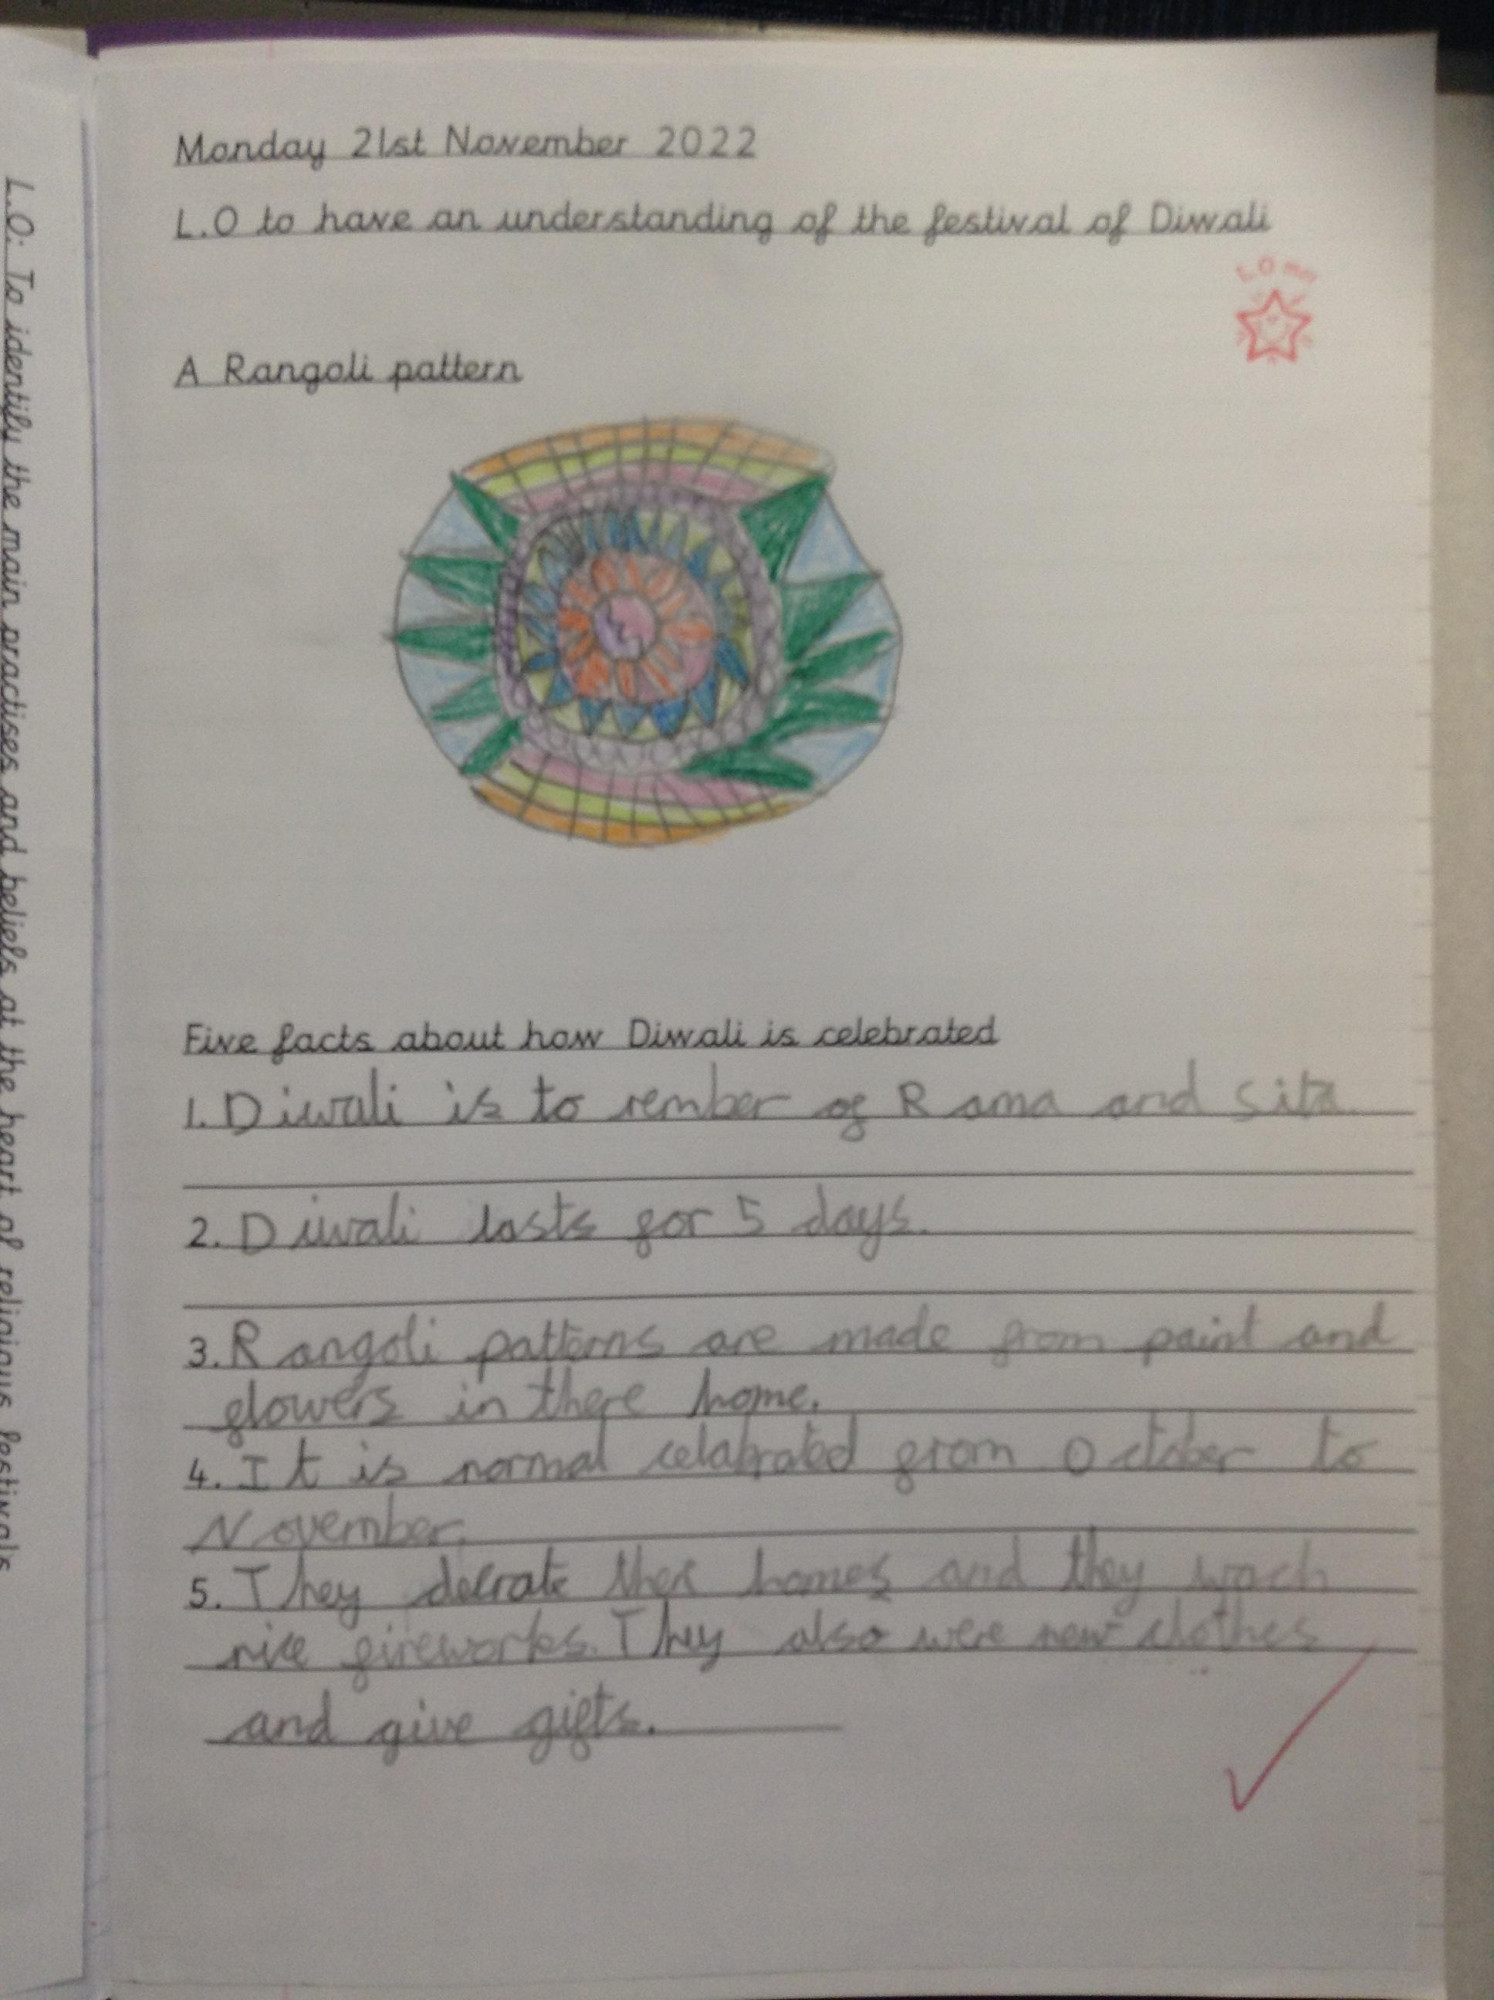 Monday 21st November 2022
L.O to have an understanding of the festival of Diwali
L.O met
A Rangoli pattern
Five facts about how Diwali is celebrated
1. Diwali is to rember of Rama and Sita.
2. Diwali lasts for 5 days.
3. Rangoli patterns are made from paint and
flowers in there home.
4. It is normal celabrated from October to
November.
5. They decrate ther homes and they wach
nice fireworks. They also were new clothes
and give gifts.
L.O: To identify the main practises and beliefs at the heart of religious festivals